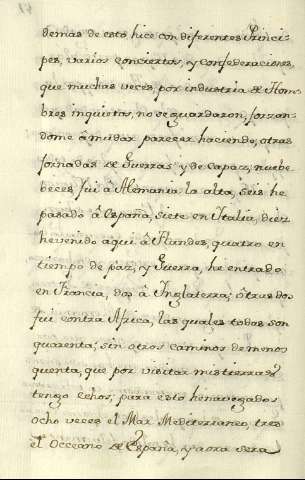 demas de esto hice con diferentes Princi-
pes, varios conciertos, y Confederaciones,
que muchas veces, por industria de Hom-
bres inquietos, no se guardaron, forzan-
dome â mudar parecer haciendo, otras
Jornadas de Guerras y de Capaz, nuebe
beces fui â Alemania la alta, seis he
pasado â España, siete en Italia, diez
he venido aqui â Flandes, quatro en
tiempo de paz, y Guerra, he entrado
en Francia, dos â Inglaterra; ôtras dos
fui contra Africa, las quales todas son
quarenta; sin otros caminos de menos
quenta, que por visitar mis tierras
tengo echos, para esto he navegado
ocho veces el Mar Mediterraneo, tres
el Occeano de España, y aora sera